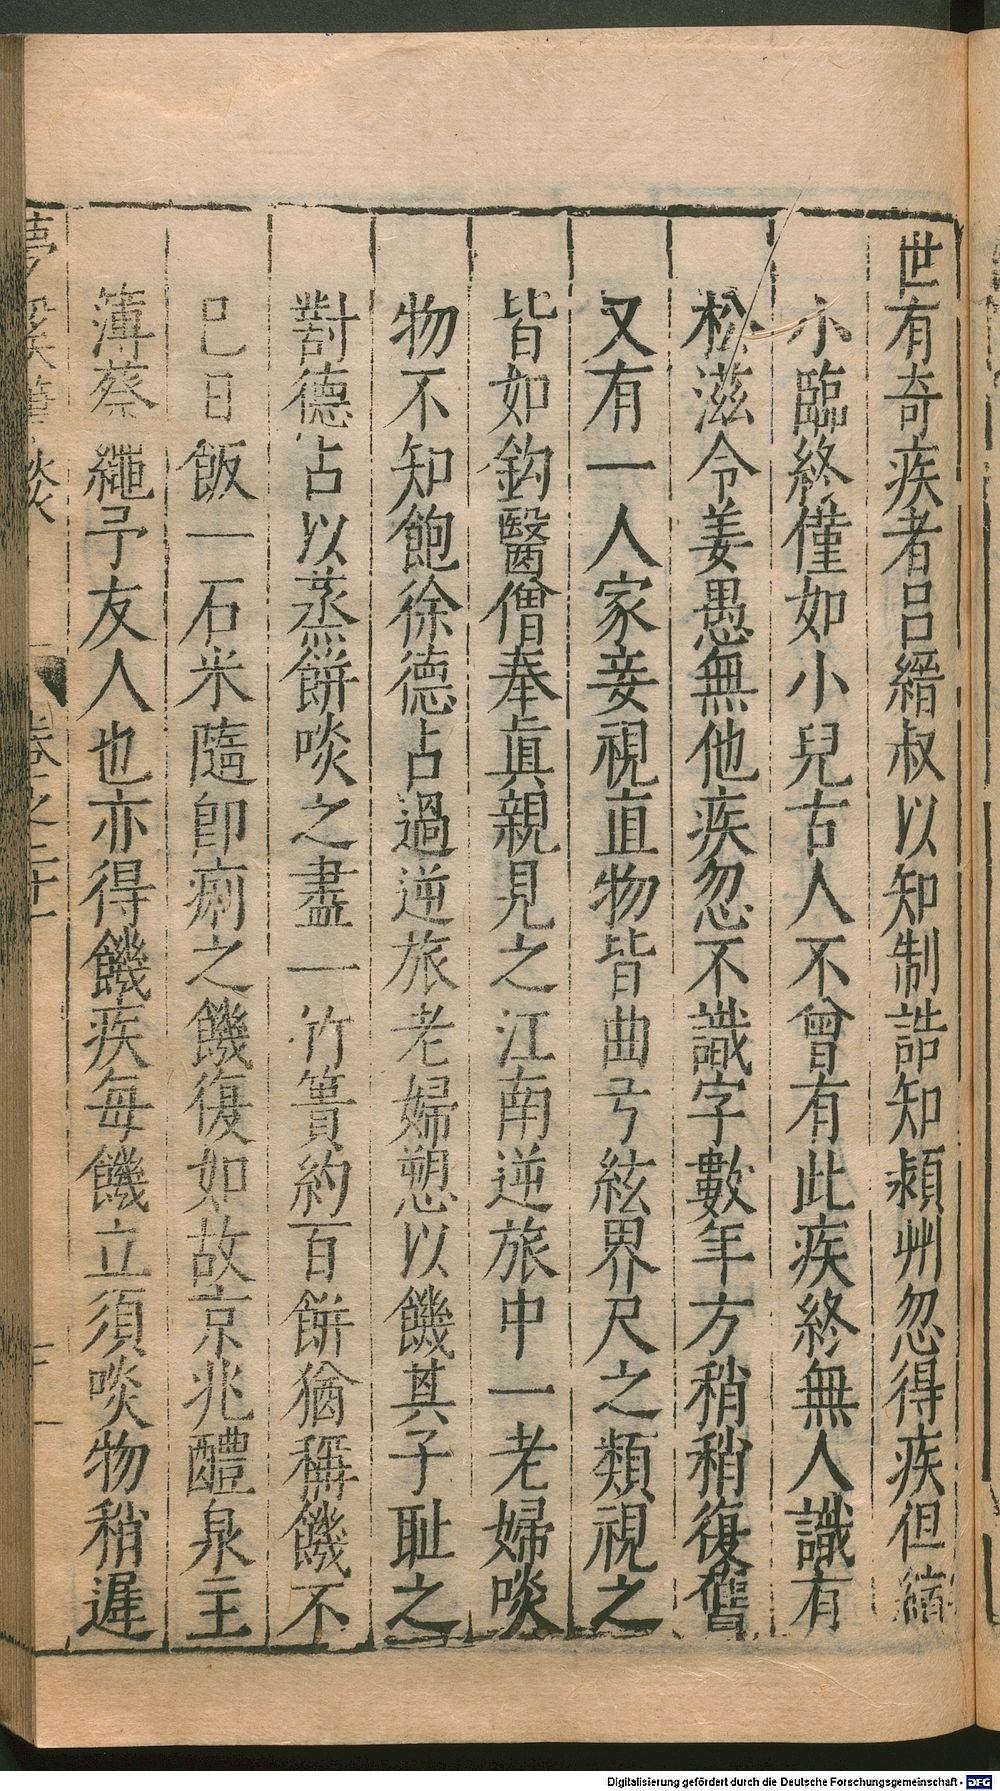 世有奇疾者呂縉叔以知制誥知潁州忽得疾但縮
小臨終僅如小兒古人不曾有此疾終無人識有
松滋令姜愚無他疾忽不識字數年方稍稍復舊
又有一人家妾視直物皆曲弓絃界尺之類視之
皆如鈎醫僧奉眞親見之江南逆旅中一老婦啖
物不知飽徐德占過逆旅老婦愬以饑其子耻之
對德占以蒸餅啖之盡一竹簣約百餅猶稱饑不
已日飯一石米隨即痢之饑復如故京兆醴泉主
簿蔡繩予友人也亦得饑疾每饑立須啖物稍遲
夢溪筆談 卷之二十一
Digitalisierung gefördert durch die Deutsche Forschungsgemeinschaft - DFG